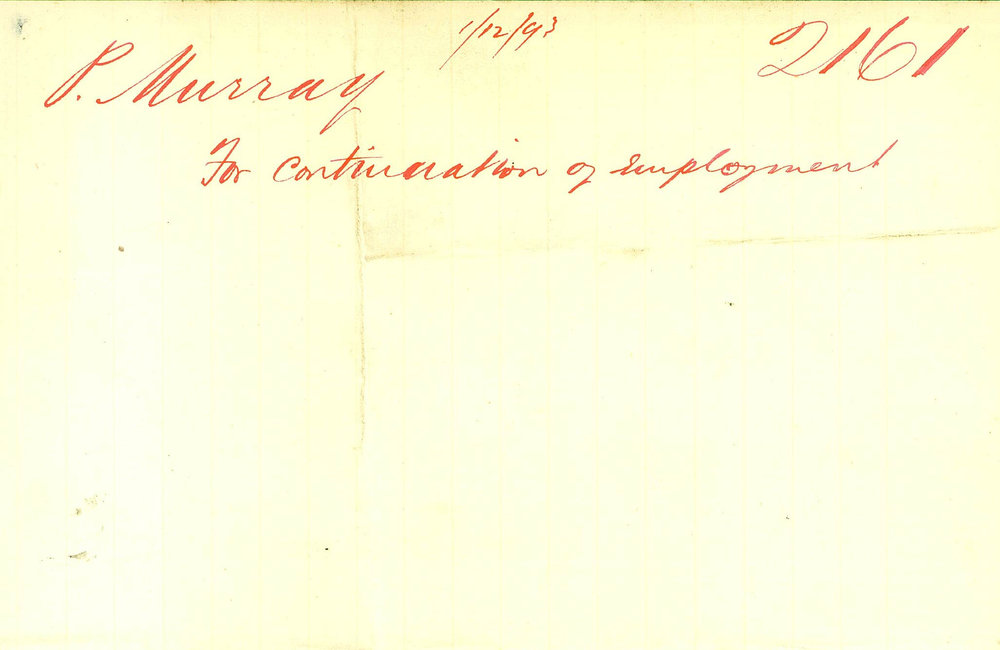 1/12/93
2161
P. Murray
For Continuation of Employment